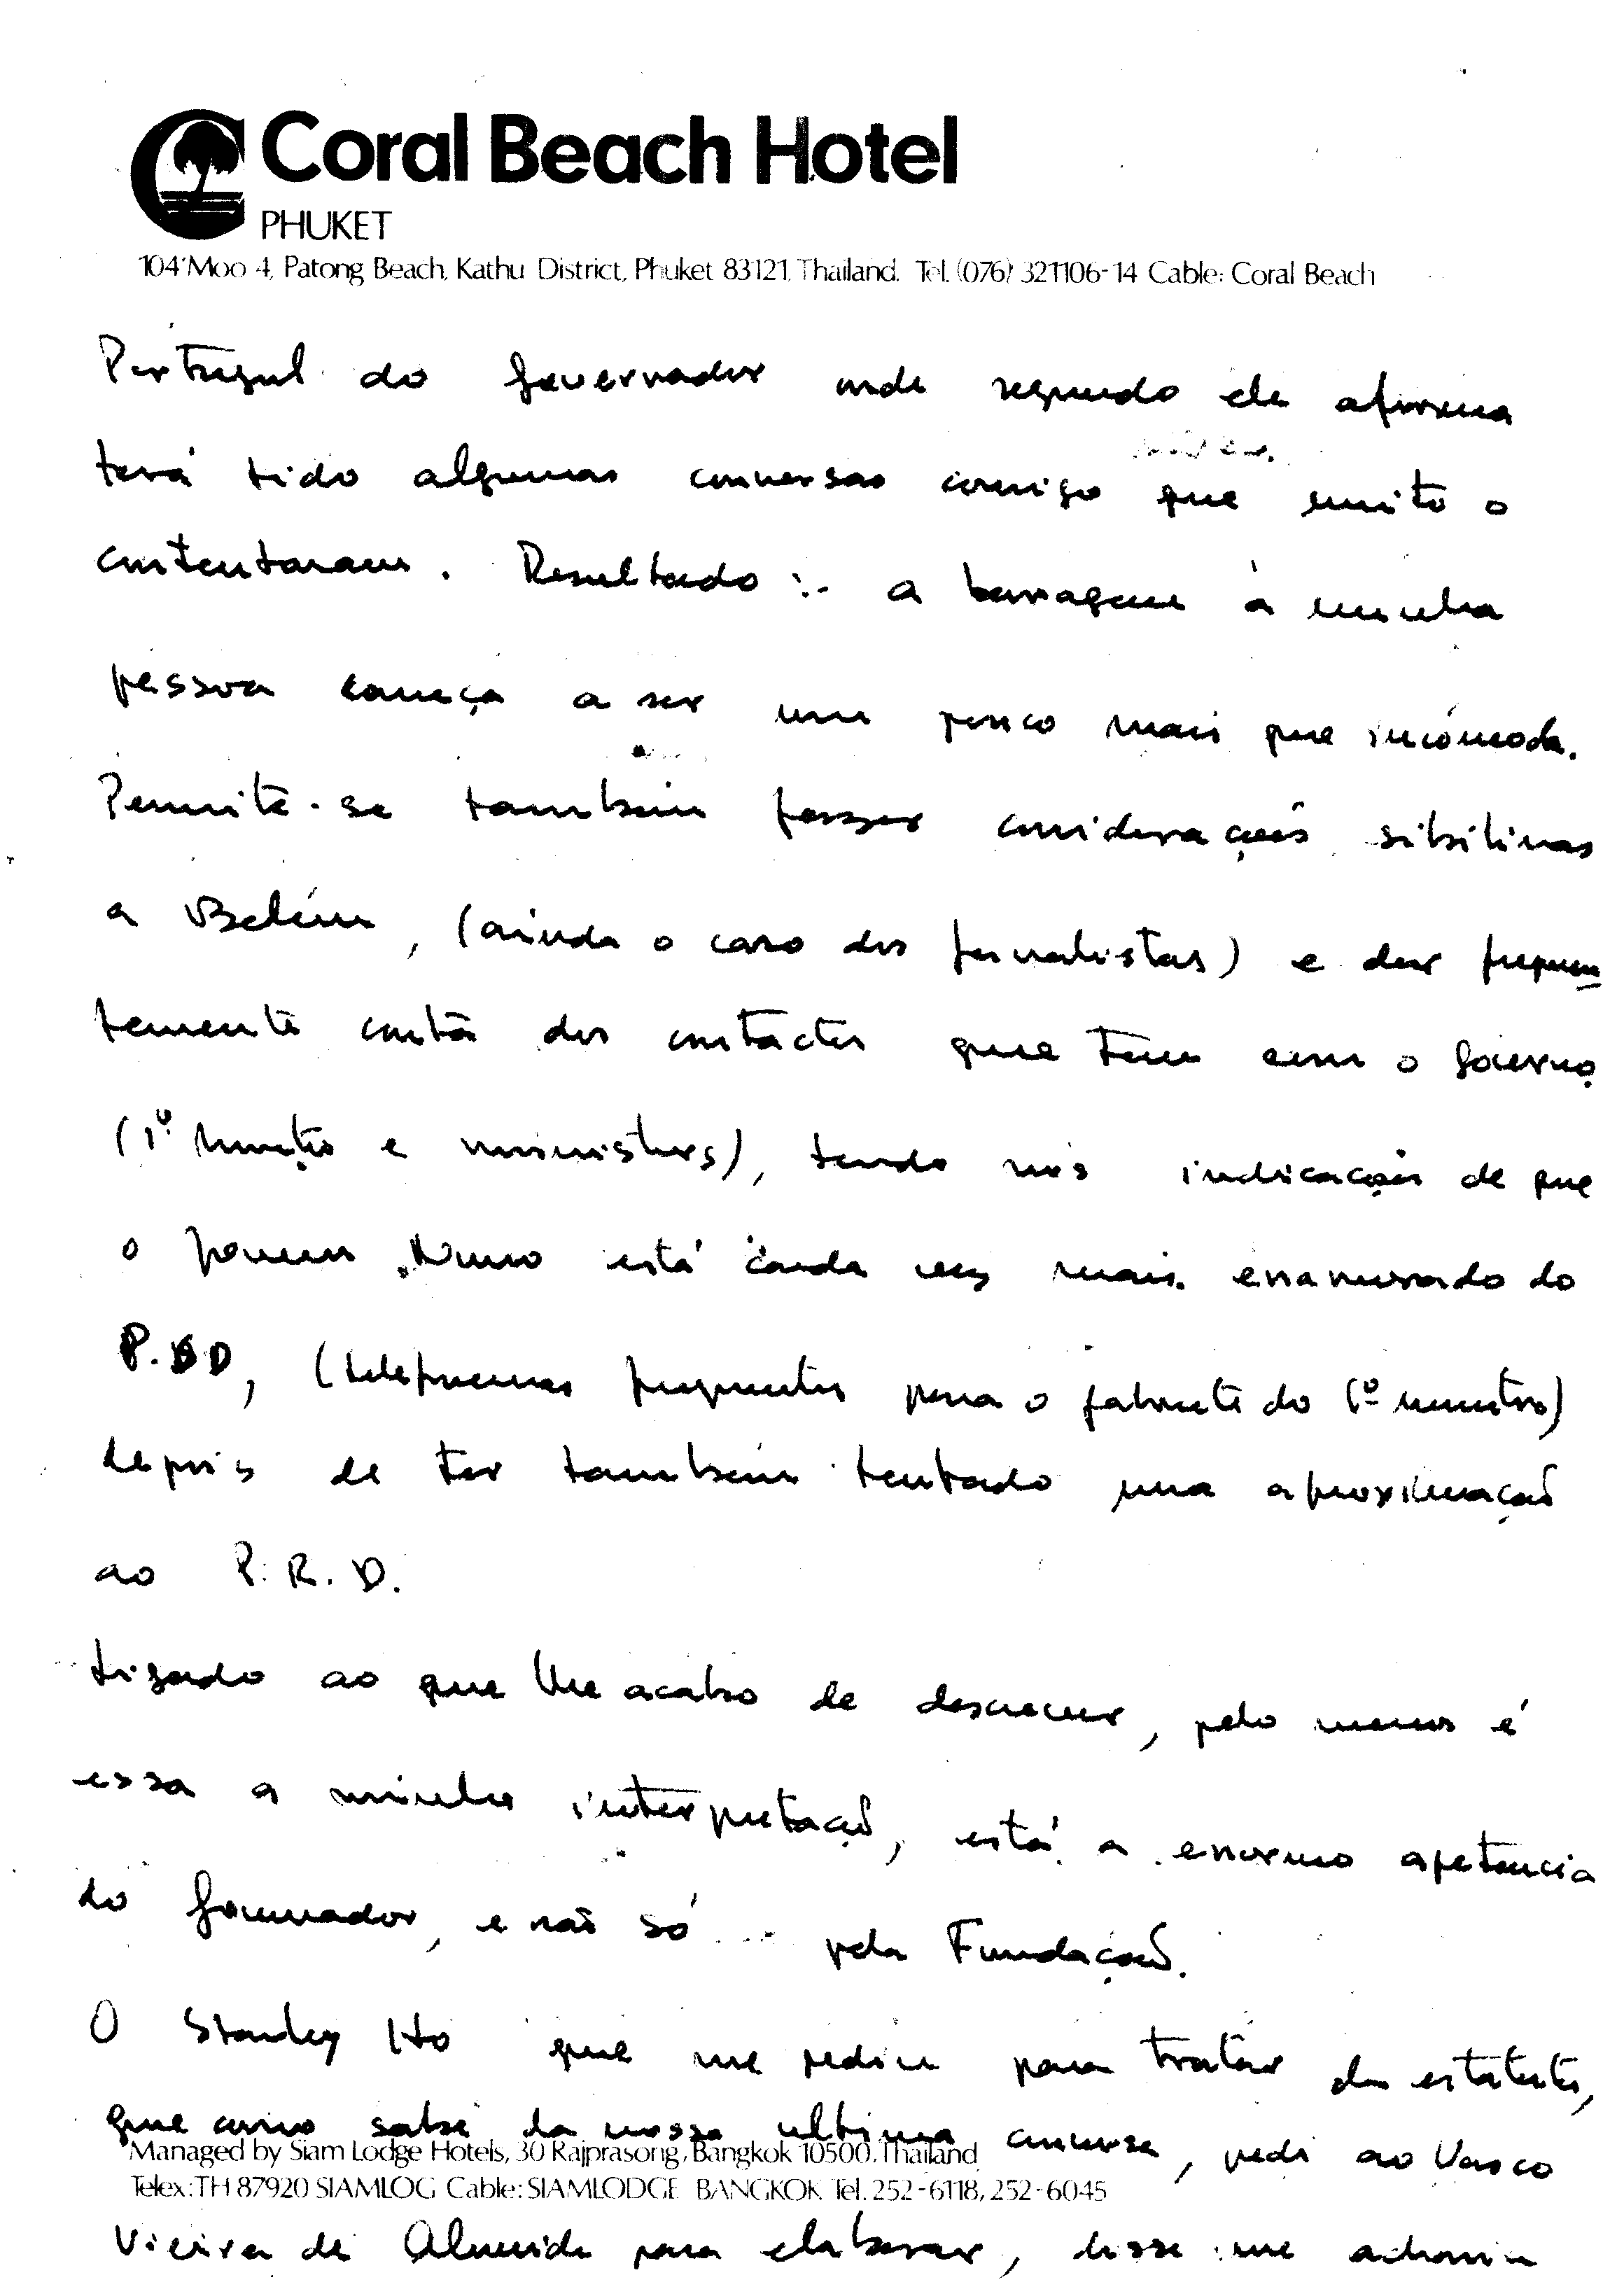 Coral Beach Hotel
PHUKET
104 Moo 4, Patong Beach, Kathu District, Phuket 83121, Thailand. Tel. (076) 321106-14 Cable: Coral Beach
Portugal do governador onde segundo ele afirma
terá tido algumas conversas comigo que muito o
contentaram. Resultado :- a barragem à minha
pessoa começa a ser um pouco mais que incómoda.
Permite-se também fazer considerações sibilinas
a Belém, (ainda o caso dos jornalistas) e dar frequen
temente conta dos contactos que tem com o governo
(1º Ministro e ministros), tendo nós indicações de que
o jovem Nuno está cada vez mais enamorado do
P.SD, (telefonemas frequentes para o gabinete do 1º ministro)
depois de ter também tentado uma aproximação
ao P.R.D.
Ligado ao que lhe acabo de descrever, pelo menos é
essa a minha interpretação, está a enorme apetência
do governador, e não só ... pela Fundação.
O Stanley Ho que me pediu para tratar dos estatutos,
que como sabe da nossa ultima conversa, pedi ao Vasco
Managed by Siam Lodge Hotels, 30 Rajprasong, Bangkok 10500, Thailand
Telex: TH 87920 SIAMLOG Cable: SIAMLODGE BANGKOK Tel. 252-6118, 252-6045
Vieira de Almeida para elaborar, disse-me